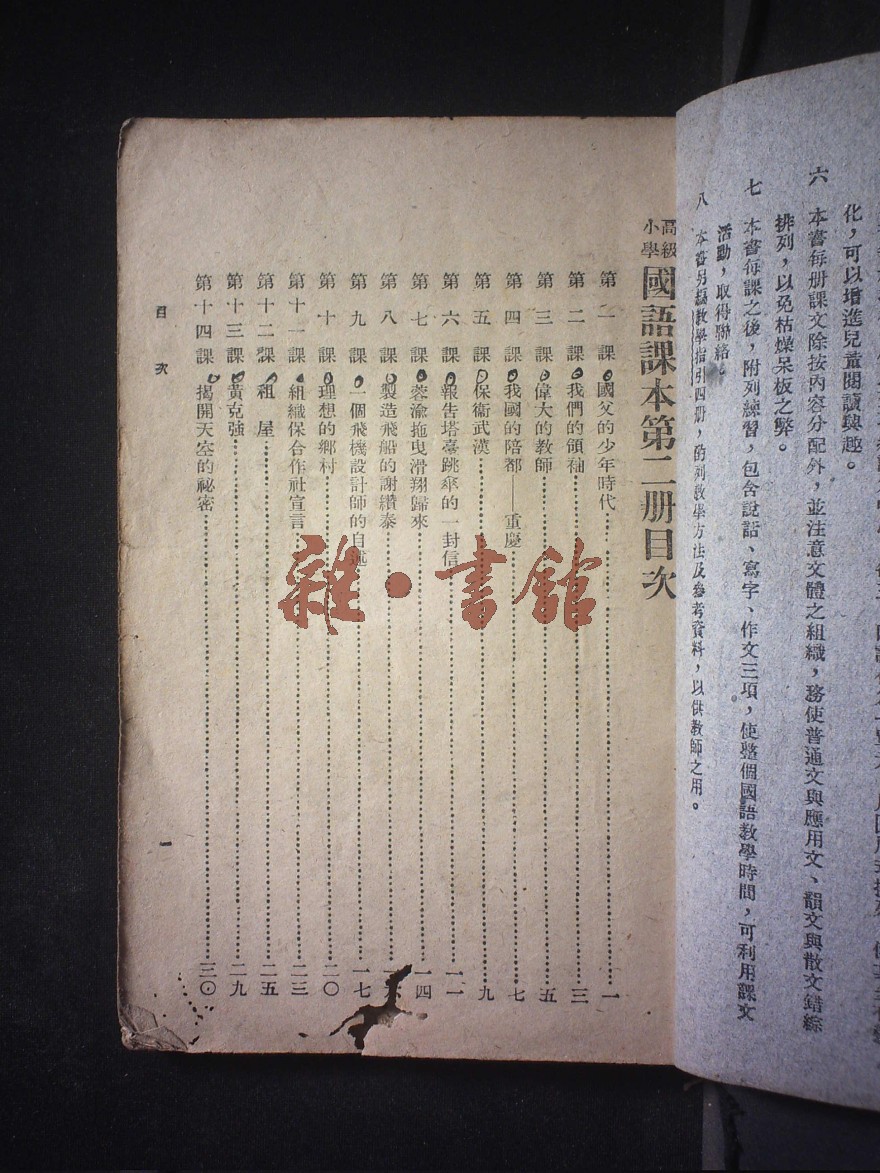 化，可以增進兒童閱讀興趣。
六　本書每册課文除按內容分配外，並注意文體之組織，務使普通文與應用文、韻文與散文錯綜
排列，以免枯燥呆板之弊。
七　本書每課之後，附列練習，包含說話、寫字、作文三項，使整個國語教學時間，可利用課文
活動，取得聯絡。
八　本書另編教學指引四册，酌列教學方法及參考資料，以供教師之用。
高級小學國語課本第二册目次
第一課　國父的少年時代　一
第二課　我們的領袖　三
第三課　偉大的教師　五
第四課　我國的陪都——重慶　七
第五課　保衞武漢　九
第六課　報告塔臺跳傘的一封信　一一
第七課　蓉渝拖曳滑翔歸來　一四
第八課　製造飛船的謝纘泰
第九課　一個飛機設計師的自述　一七
第十課　理想的鄉村　二〇
第十一課　組織保合作社宣言　二三
第十二課　租屋　二五
第十三課　黃克強　二九
第十四課　揭開天空的祕密　三〇
目次　一
雜·書館